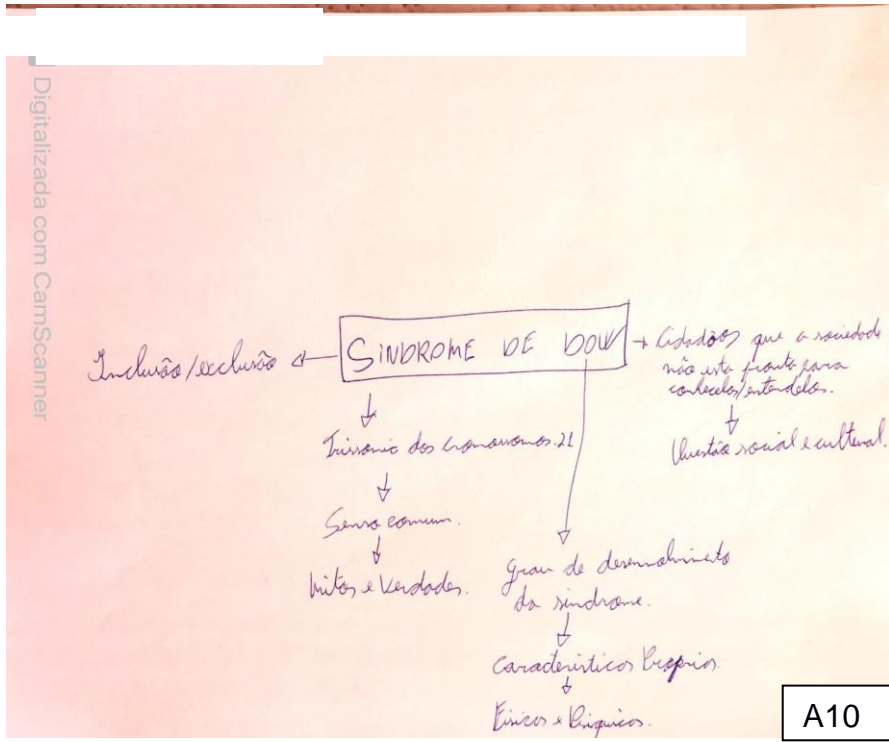 Digitalizada com CamScanner
SINDROME DE DOW
Inclusão/exclusão
Cidadãos que a sociedade
não esta pronta para
conhecelos/entendelos.
Questão social e cultural.
Trissomia dos cromossomos 21
Senso comum.
Mitos e Verdades.
Grau de desenvolvimento
da sindrome.
Caracteristicas Proprias
Fisicas e Psiquicas.
A10